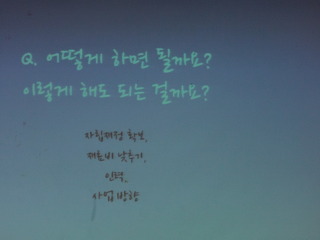 Q. 어떻게 하면 될까요?
이렇게 해도 되는 걸까요?
자립재정 확보,
재료비 낮추기,
인력,
사업 방향